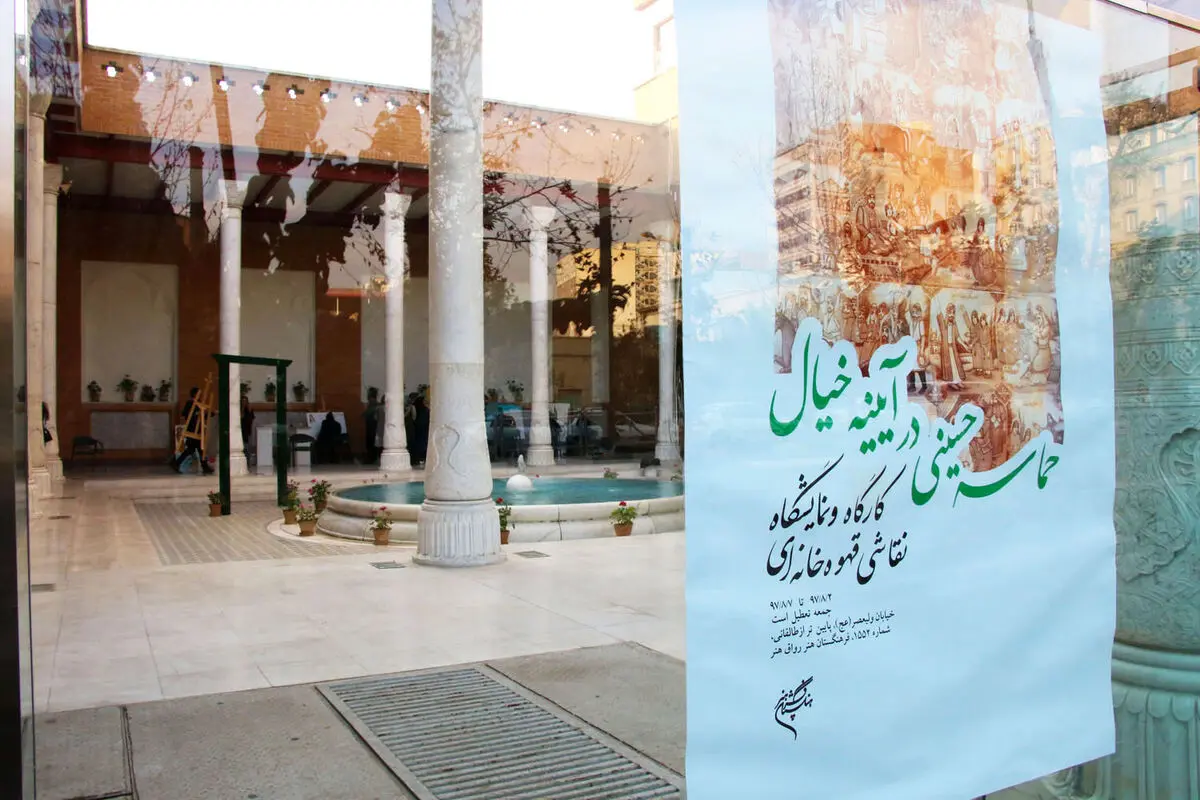 حماسه حسینی در آیینه خیال
کارگاه و نمایشگاه
نقاشی قهوه‌خانه‌ای
۹۷/۸/۲ تا ۹۷/۸/۷
جمعه تعطیل است
خیابان ولیعصر(عج)، پایین تر از طالقانی،
شماره ۱۵۵۲، فرهنگستان هنر رواق هنر
فرهنگستان هنر